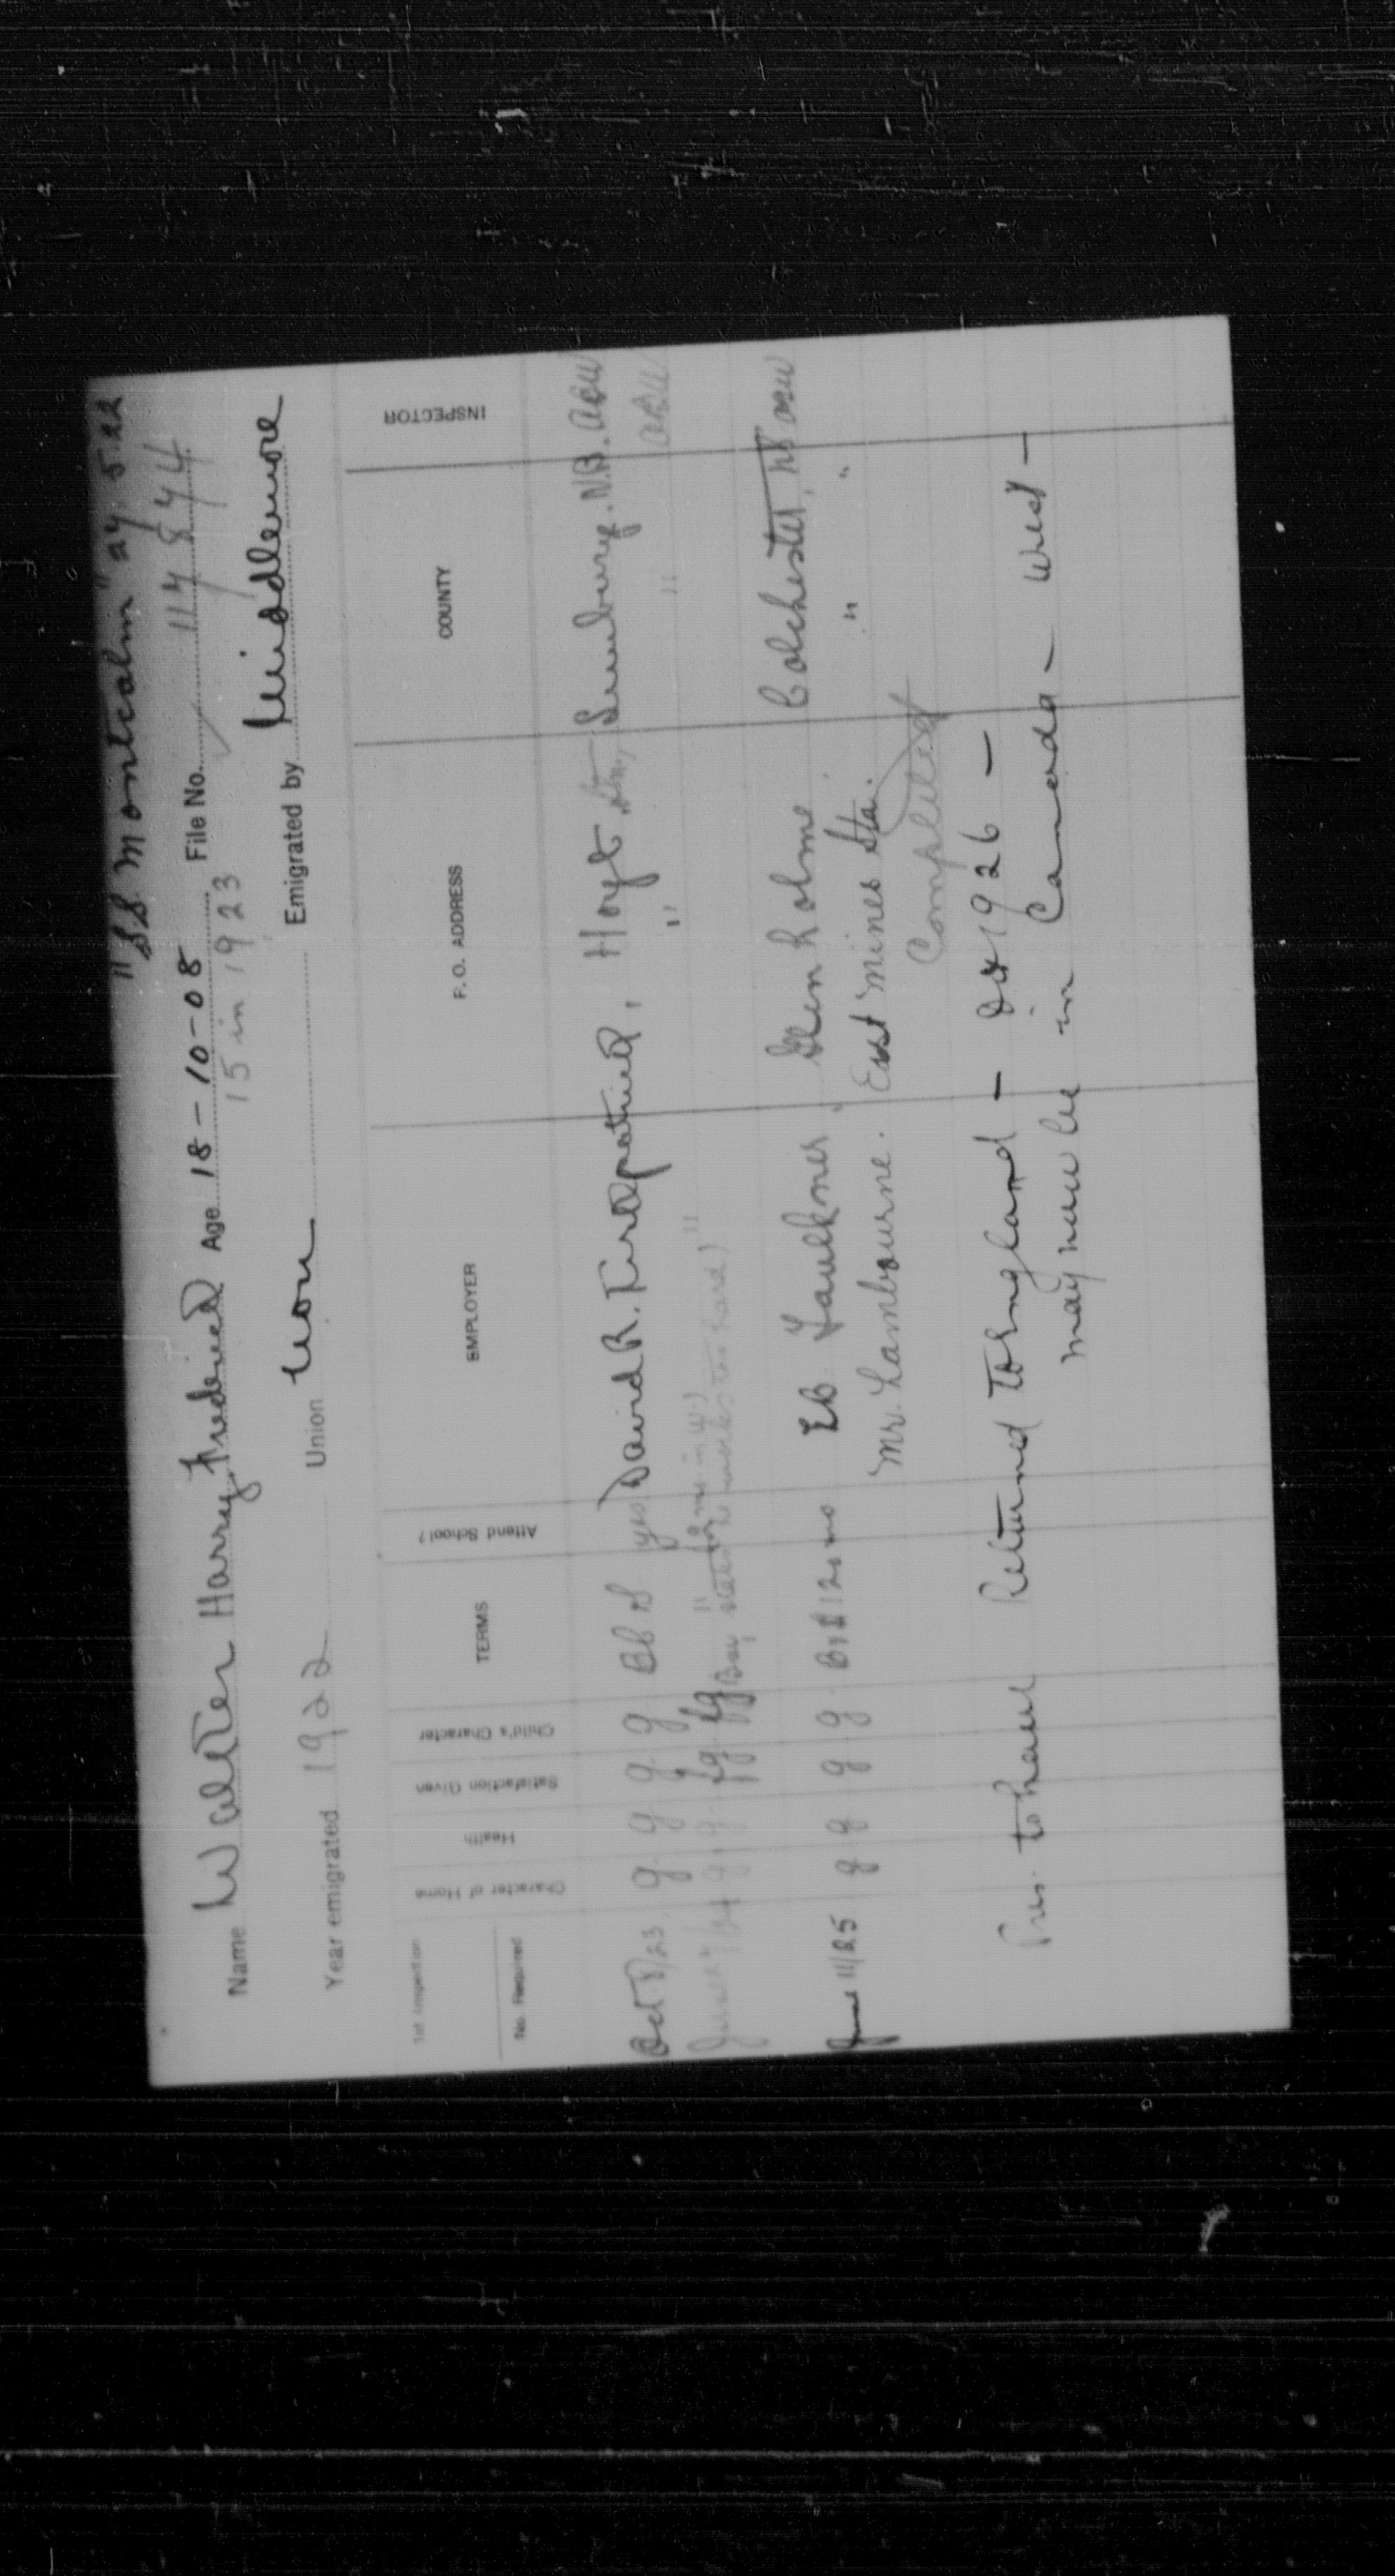 "S.S. Montcalm" 27. 5. 22
Name Walter Harry Frederick Age 18-10-08 File No. 117844
15 in 1923
Year emigrated 1922 Union Non Emigrated by Middlemore
1st Inspection Character of Home Health Satisfaction Given Child's Character TERMS Attend School? EMPLOYER P.O. ADDRESS COUNTY INSPECTOR
No. Required
Oct 8/23 g. g. g. g. yes David R. Kirkpatrick, Hoyt Stn, Sunbury. N.B.
" " "
June 11/25 g g g. g. no Faulkner. Glenholme Colchester,
Mr. Lambourne. East Mines Sta. " "
Completed
to have Returned to England - Oct 1926 -
may now be in Canada - West -